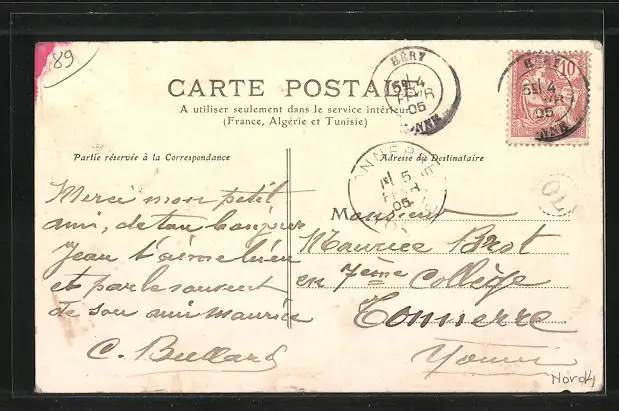 89
CARTE POSTALE
A utiliser seulement dans le service intérieur
(France, Algérie et Tunisie)
Partie réservée à la Correspondance
Adresse du Destinataire
Merci mon petit
ami, de ton bonjour
Jean t'aime bien
et parle souvent
de son ami Maurice
C. Bullard
Monsieur
Maurice Brot
en 7ème Collège
Tonnerre
Yonne
BÉRY
4
FEVR
05
YONNE
10
4
05
TONNERRE
5
05
OL
Nord4